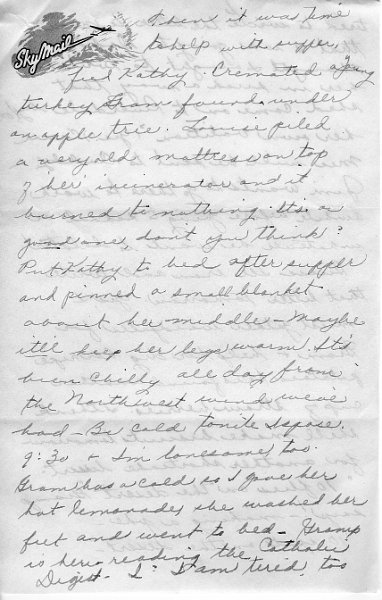 Sky Mail
Then it was time
to help with supper,
fed Kathy. Cremated a
turkey Gram found under
an apple tree. Louise piled
a very old mattress on top
of her incinerator and it
burned to nothing. Its a
good one, don't you think?
Put Kathy to bed after supper
and pinned a small blanket
about her middle - Maybe
itll keep her legs warm. It's
been chilly all day from
the Northwest wind we've
had - Be cold tonite I spose.
9:30 + I'm lonesome, too
Gram has a cold so I gave her
hot lemonade, she washed her
feet and went to bed - Gramp
is here reading the Catholic
Digest - I am tired, too